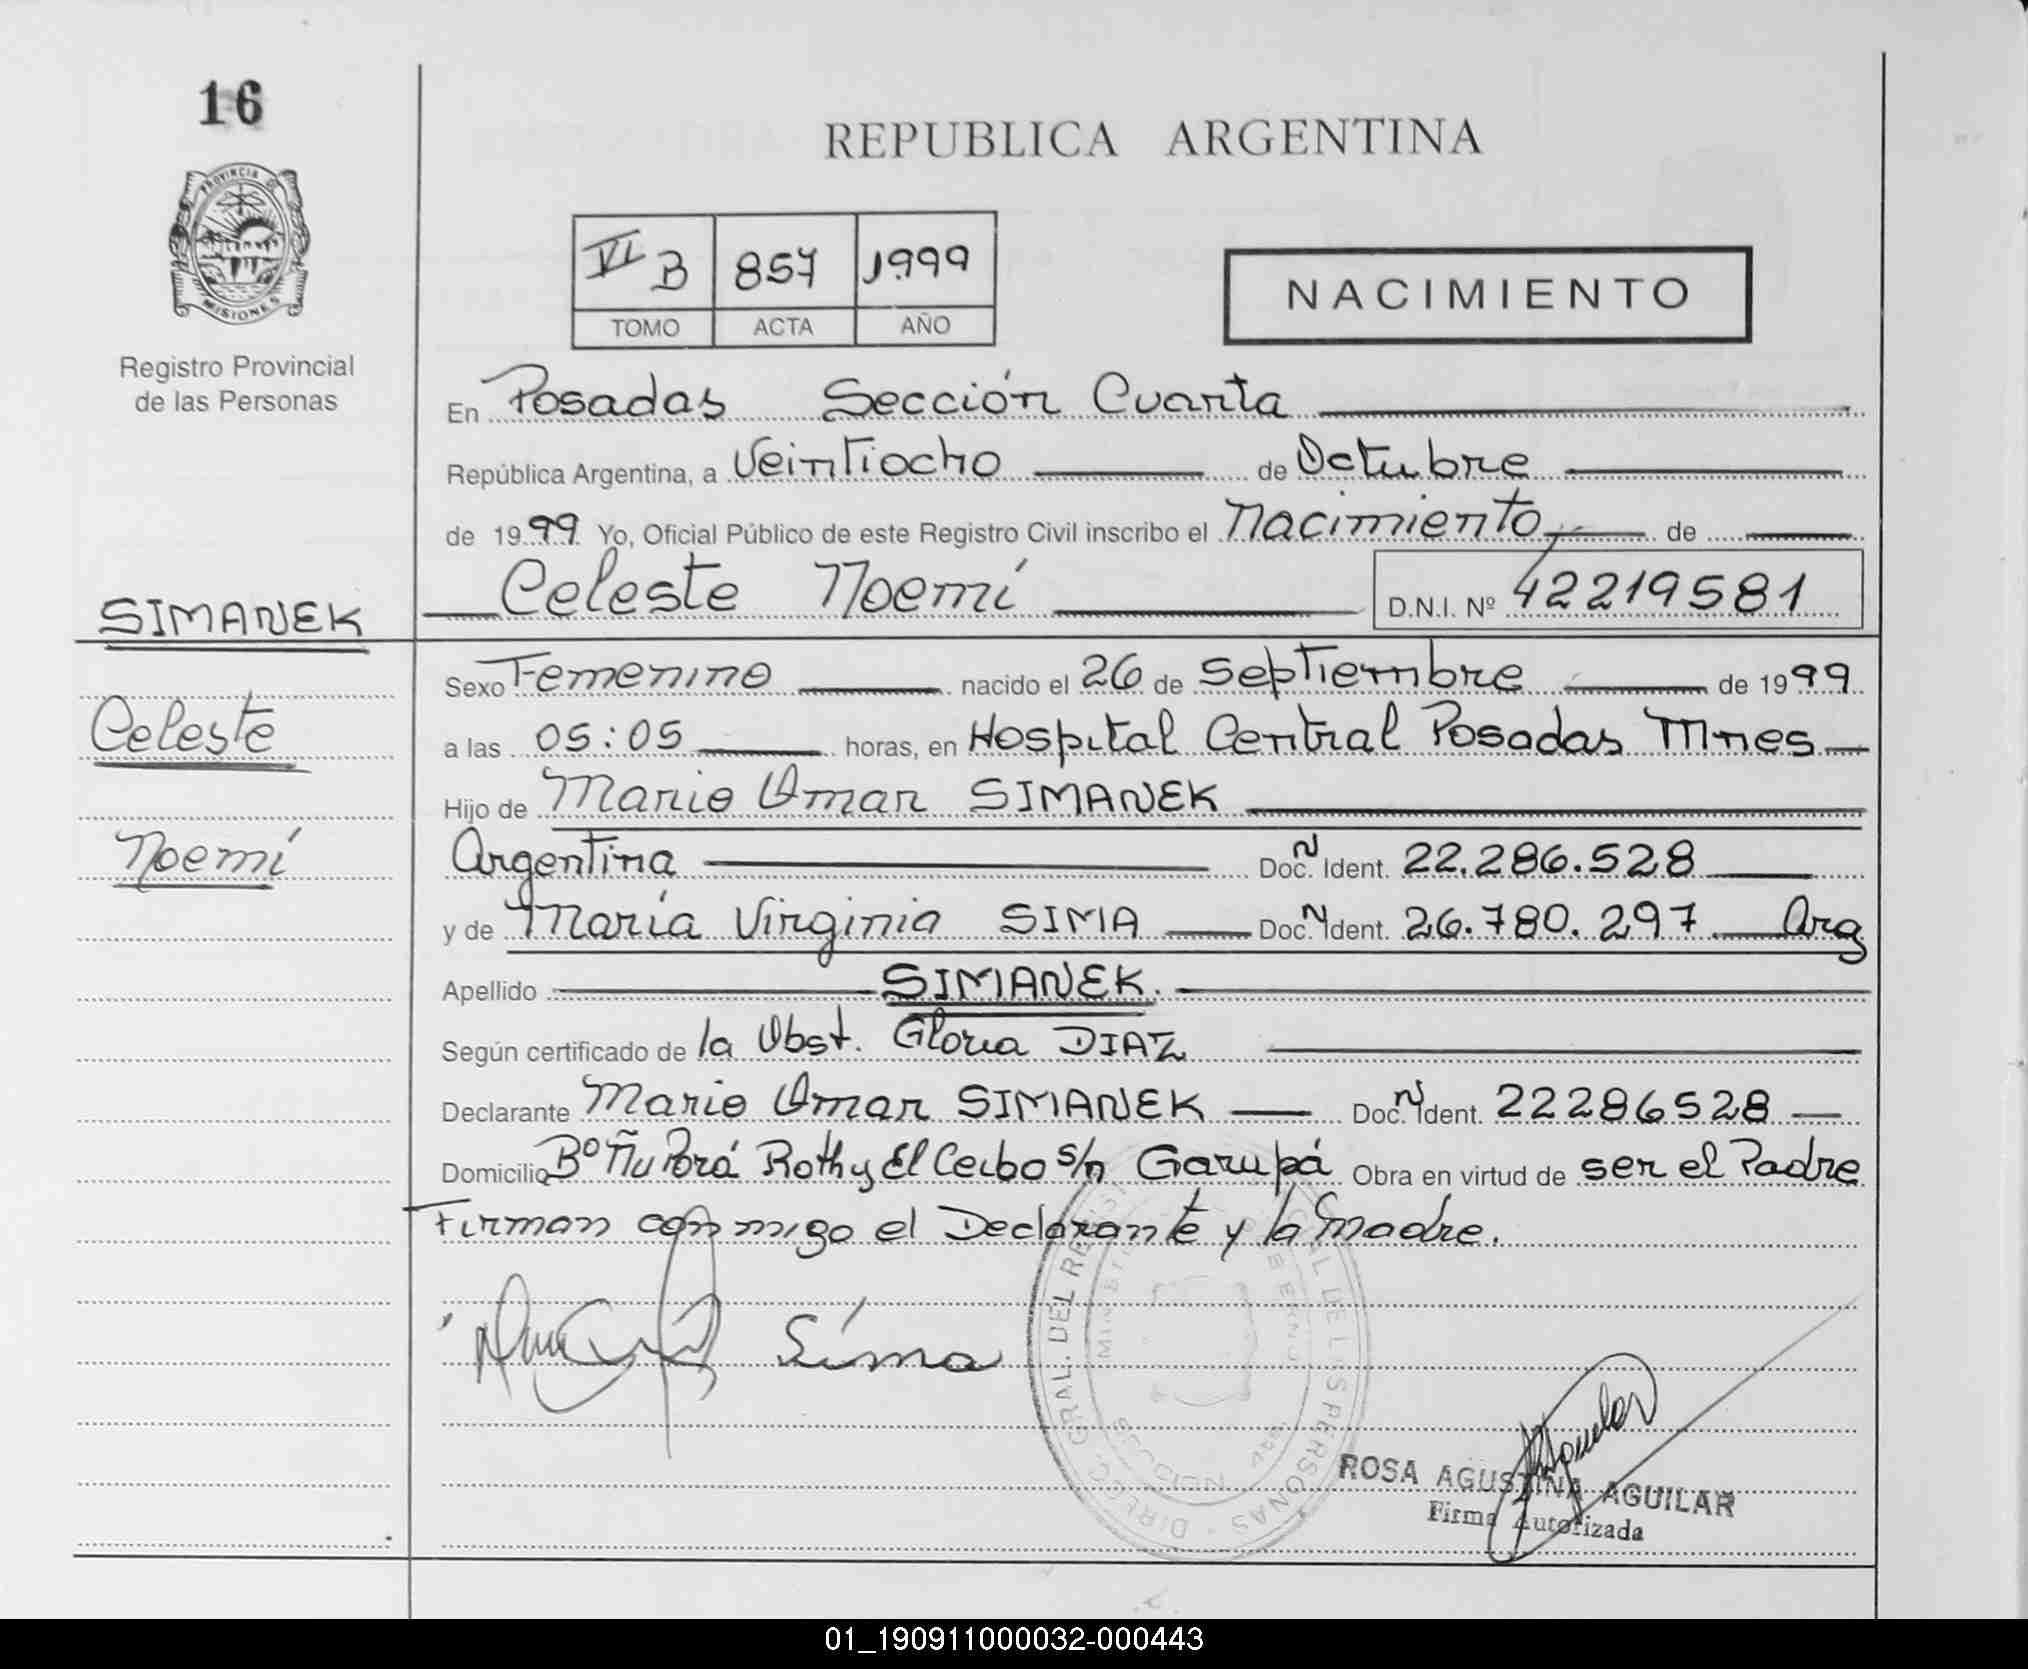 16
REPUBLICA ARGENTINA
PROVINCIA DE
MISIONES
VI B 857 1999
TOMO ACTA AÑO
NACIMIENTO
Registro Provincial
de las Personas
En Posadas Sección Cuarta
República Argentina, a Veintiocho de Octubre
de 1999 Yo, Oficial Público de este Registro Civil inscribo el Nacimiento de
Celeste Noemí D.N.I. Nº 42219581
SIMANEK
Celeste
Noemí
Sexo Femenino nacido el 26 de Septiembre de 1999
a las 05:05 horas, en Hospital Central Posadas Mnes
Hijo de Mario Omar SIMANEK
Argentina Doc. N Ident. 22.286.528
y de María Virginia SIMA Doc. N Ident. 26.780.297 Arg
Apellido SIMANEK.
Según certificado de la Obst. Gloria DIAZ
Declarante Mario Omar SIMANEK Doc. N Ident. 22286528
Domicilio Bº Ñu Porá Roth y El Ceibo s/n Garupá Obra en virtud de ser el Padre
Firman conmigo el Declarante y la Madre.
Sima
ROSA AGUSTINA AGUILAR
Firma Autorizada
01_190911000032-000443